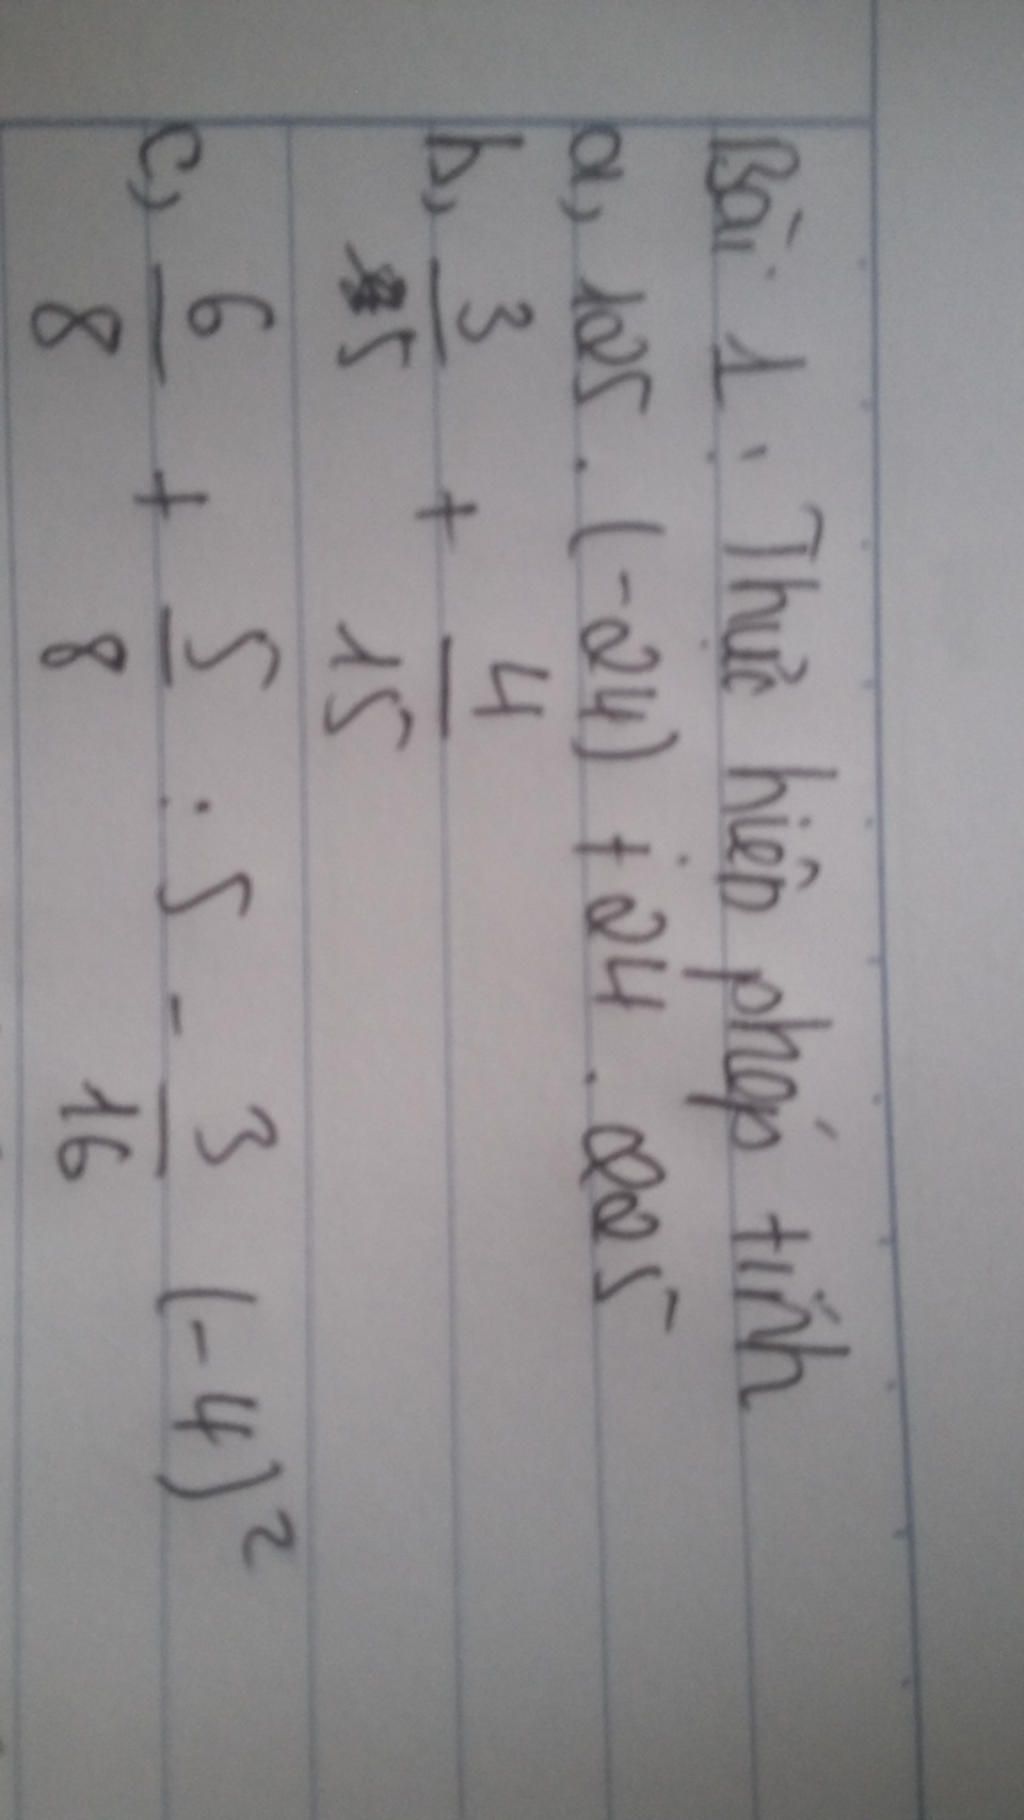 Bài 1. Thực hiện phép tính
a, 125 . (-24) + 24 . 225
b, 3/5 + 4/15
c, 6/8 + 5/8 : 5 - 3/16 (-4)²